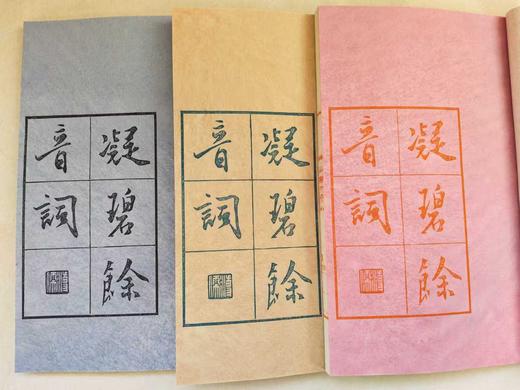 凝碧餘
音詞
凝碧餘
音詞
凝碧餘
音詞